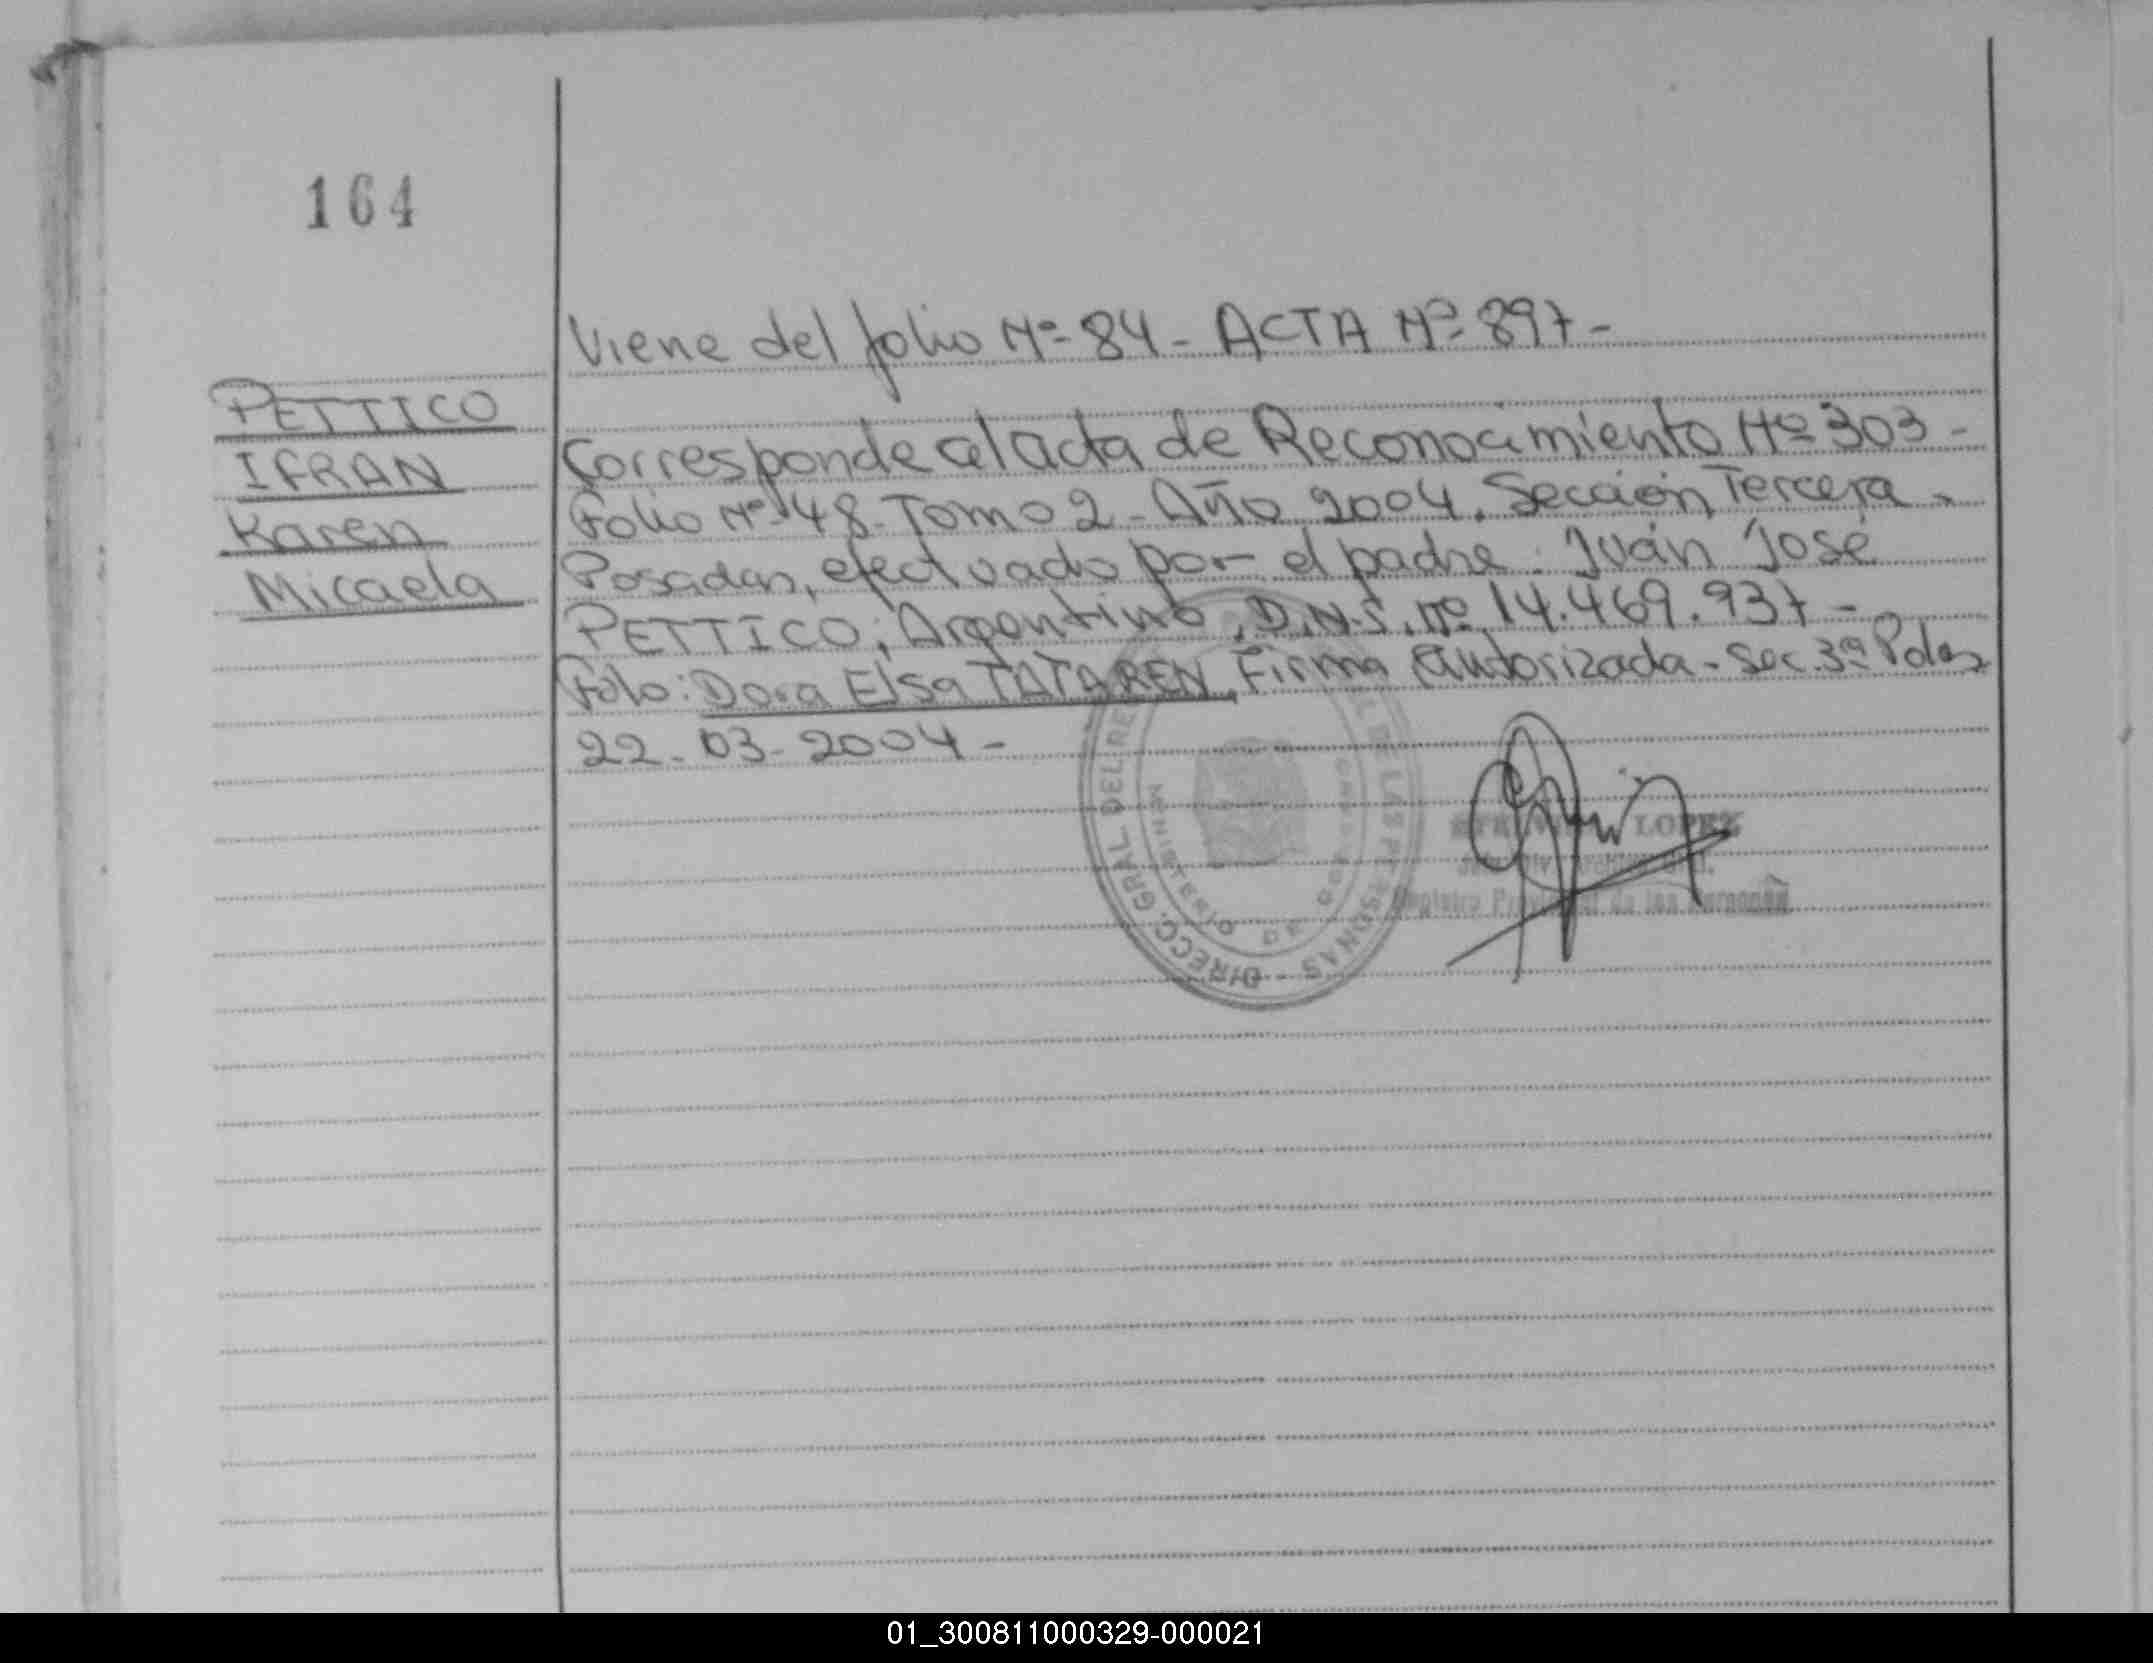 164
Viene del folio Nº 84 - ACTA Nº 897 -
PETTICO
IFRAN
Karen
Micaela
Corresponde al acta de Reconocimiento Nº 303 -
Folio Nº 48 - Tomo 2 - Año 2004. Sección Tercera -
Posadas, efectuado por el padre: Iván José
PETTICO, Argentino, D.N.I. Nº 14.469.937 -
Fdo: Dora Elsa TATAREN, Firma Autorizada - Sec. 3ª Pdas
22-03-2004 -
DIRECC. GRAL DEL RE DE LAS PERSONAS -
MINISTERIO DE GOBIERNO
LOPEZ
Registro Provincial de las Personas
01_300811000329-000021